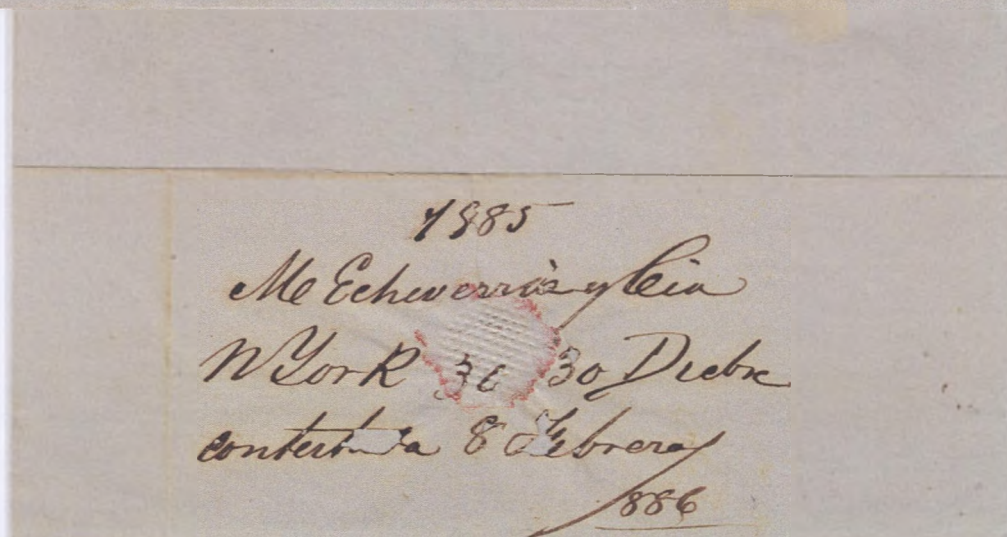 1885
M Echeverria y Cia
N York 30 30 Dicbre
contestada 8 Febrero
1886